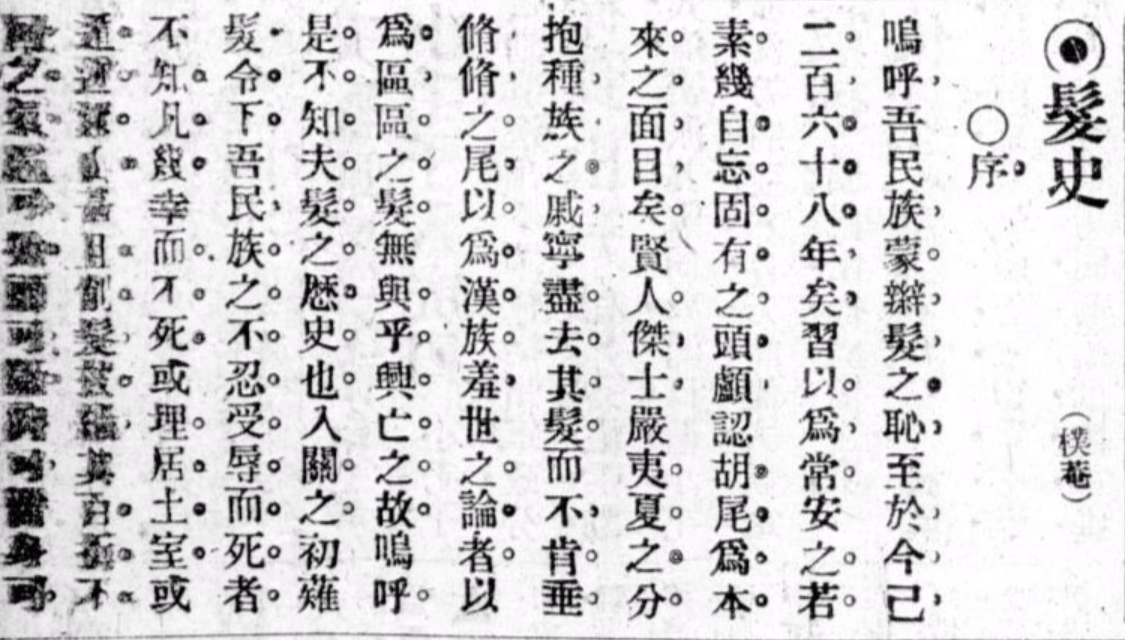 髮史
（樸菴）
○序
嗚呼吾民族蒙辮髮之恥至於今己
二百六十八年矣習以爲常安之若
素幾自忘固有之頭顱認胡尾爲本
來之面目矣賢人傑士嚴夷夏之分
抱種族之戚寧盡去其髮而不肯垂
脩脩之尾以爲漢族羞世之論者以
爲區區之髮無與乎興亡之故嗚呼
是不知夫髮之歷史也入關之初薙
髮令下吾民族之不忍受辱而死者
不知凡幾幸而不死或理居土室或
髮其不
之可